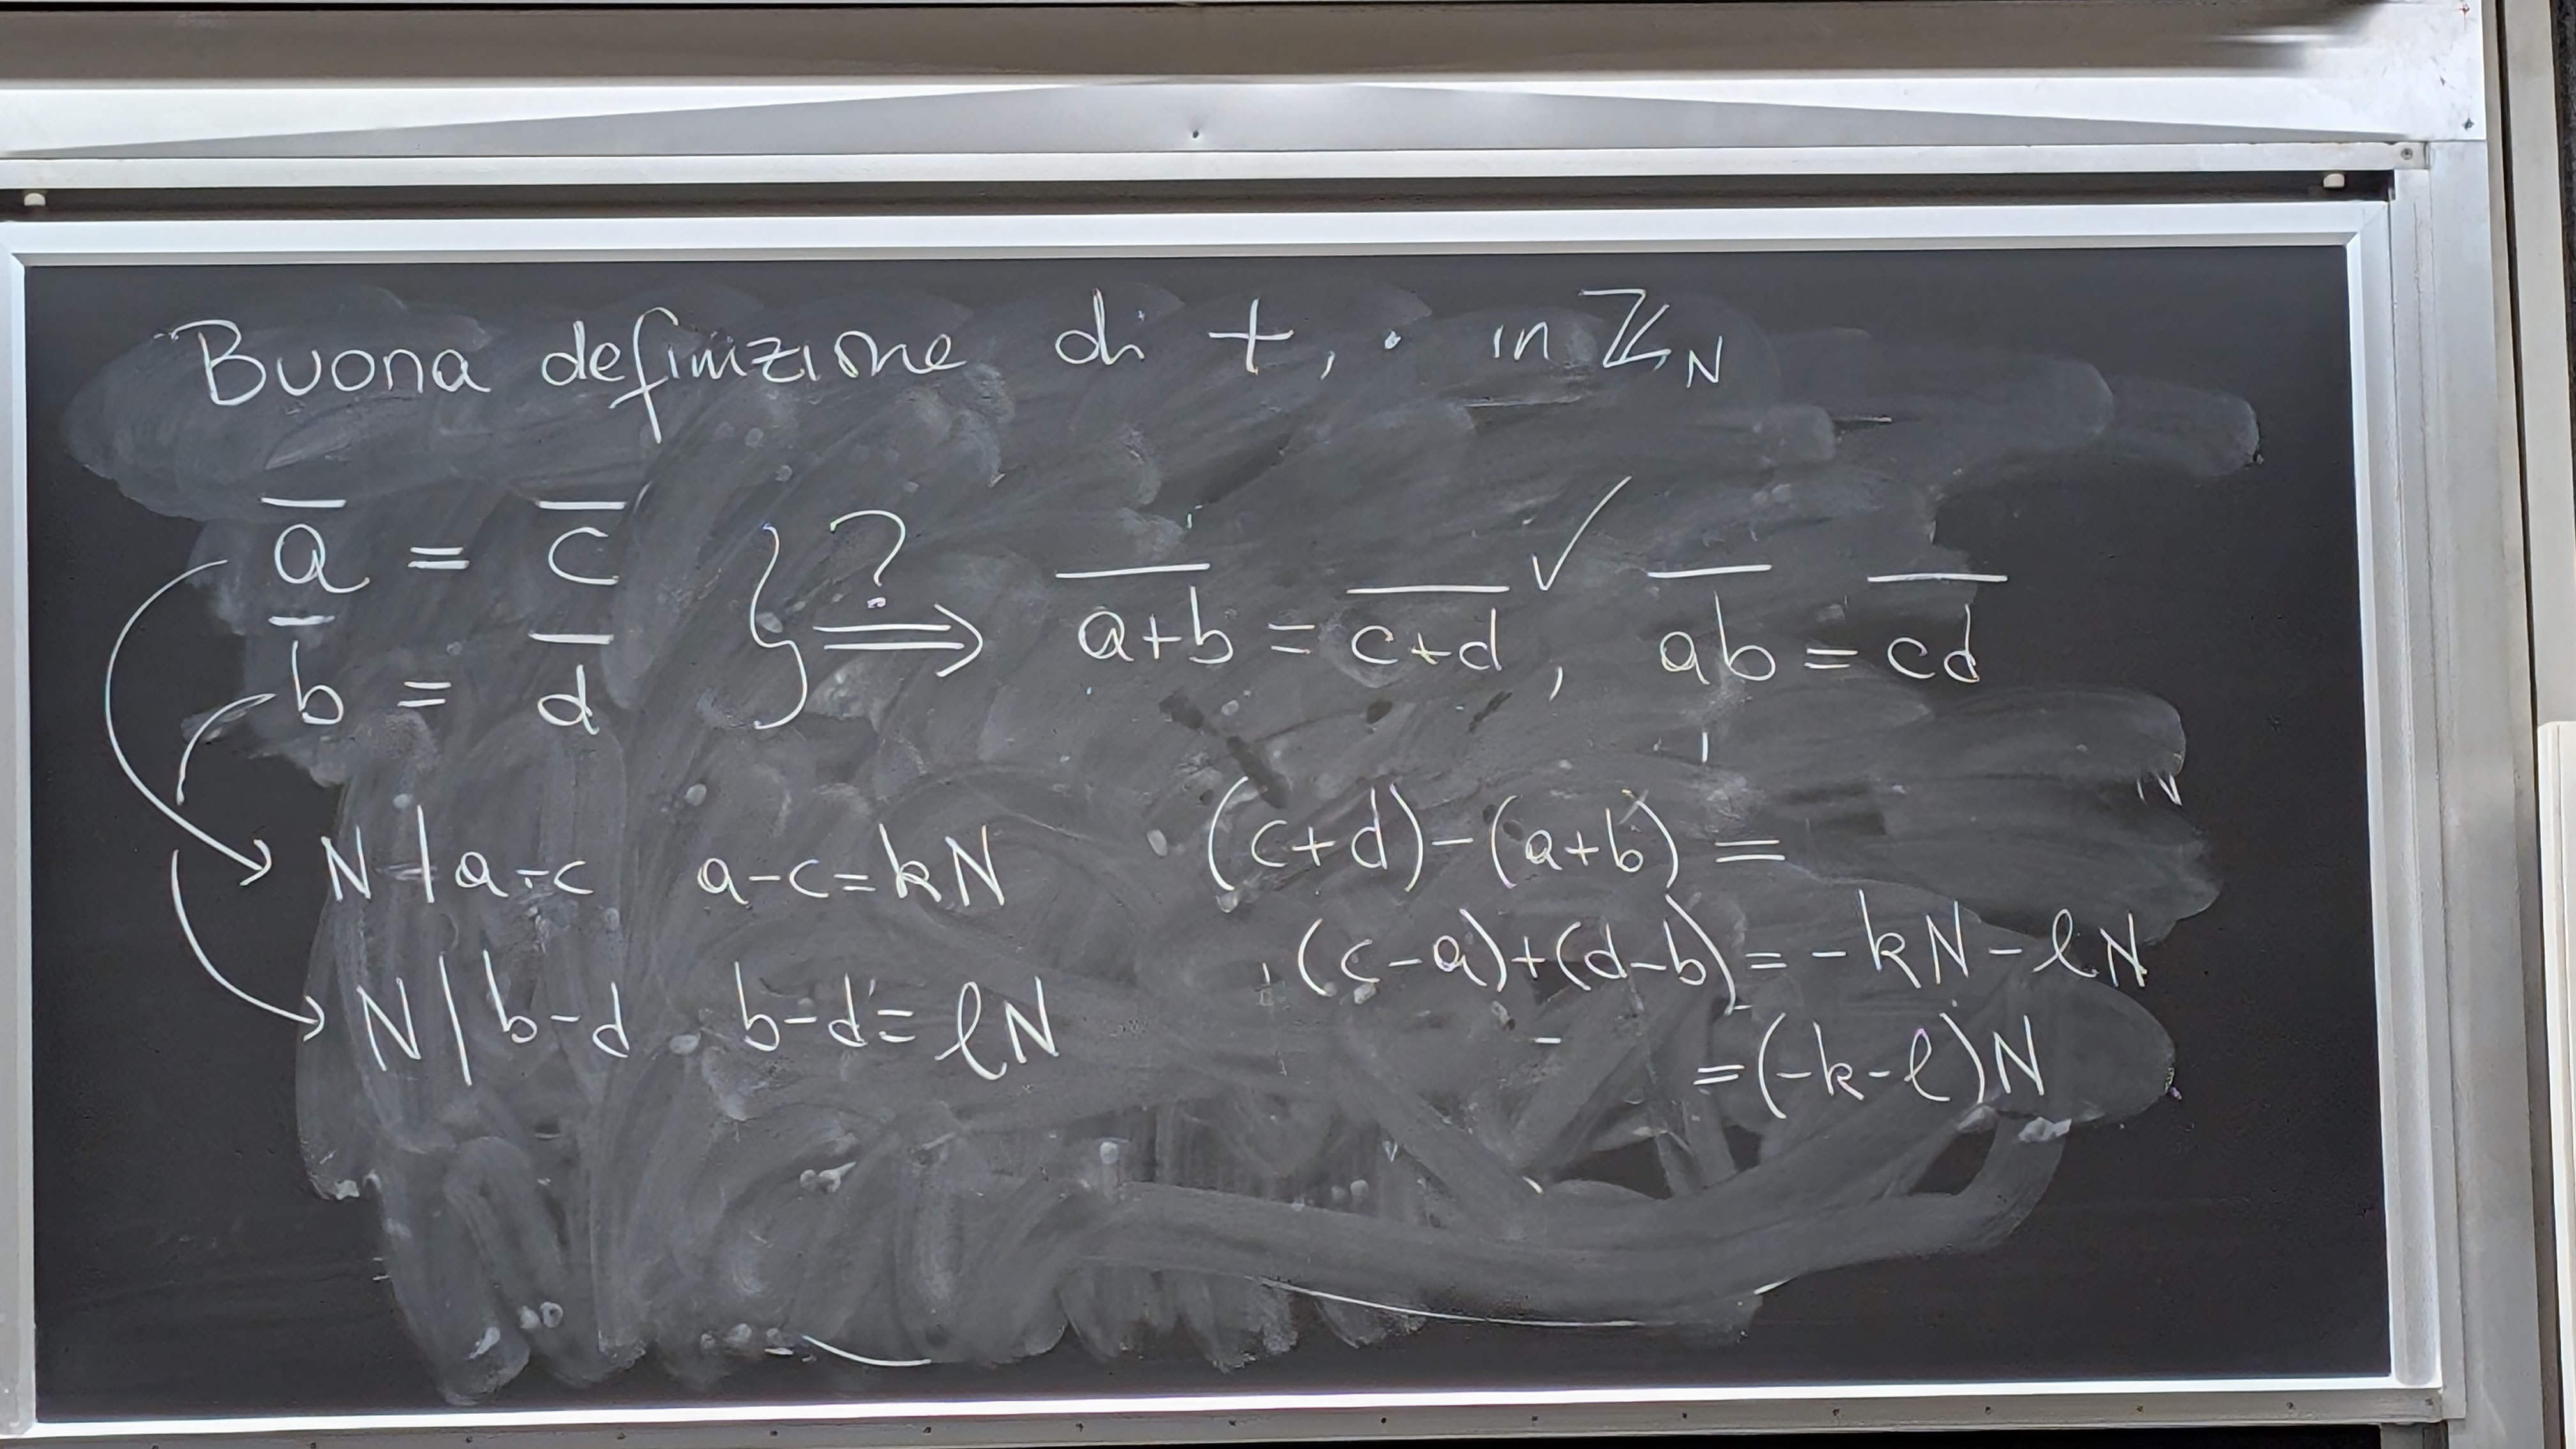 Buona definizione di +, · in ℤ_N
a̅ = c̅
b̅ = d̅
} ?⟹ \overline{a+b} = \overline{c+d} ✓, \overline{ab} = \overline{cd}
N | a-c   a-c=kN
N | b-d   b-d=ℓN
(c+d)-(a+b) =
(c-a)+(d-b) = -kN-ℓN
=(-k-ℓ)N